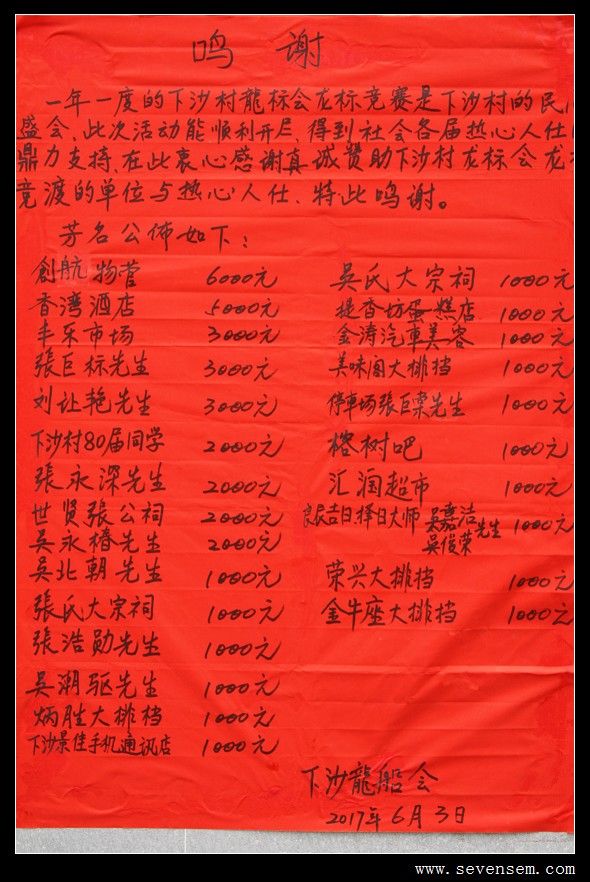 鸣 谢
一年一度的下沙村龍标会龙标竞赛是下沙村的民
盛会、此次活动能顺利开展、得到社会各届热心人仕
鼎力支持、在此衷心感谢真诚赞助下沙村龙标会龙
竞渡的单位与热心人仕、特此鸣谢。
芳名公佈如下：
創航物营 6000元
香湾酒店 5000元
丰乐市场 3000元
張巨标先生 3000元
刘让艳先生 3000元
下沙村80届同学 2000元
張永深先生 2000元
世贤張公祠 2000元
吴永椿先生 2000元
吴北朝先生 1000元
張氏大宗祠 1000元
張浩勋先生 1000元
吴潮驱先生 1000元
炳胜大排档 1000元
下沙景佳手机通讯店 1000元
吴氏大宗祠 1000元
提香坊蛋糕店 1000元
金涛汽車美容 1000元
美味阁大排挡 1000元
停車场張巨荣先生 1000元
榕树吧 1000元
汇润超市 1000元
良辰吉日择日大师 吴嘉洁 吴俊荣 先生 1000元
荣兴大排挡 1000元
金牛座大排挡 1000元
下沙龍船会
2017年6月3日
www.sevensem.com